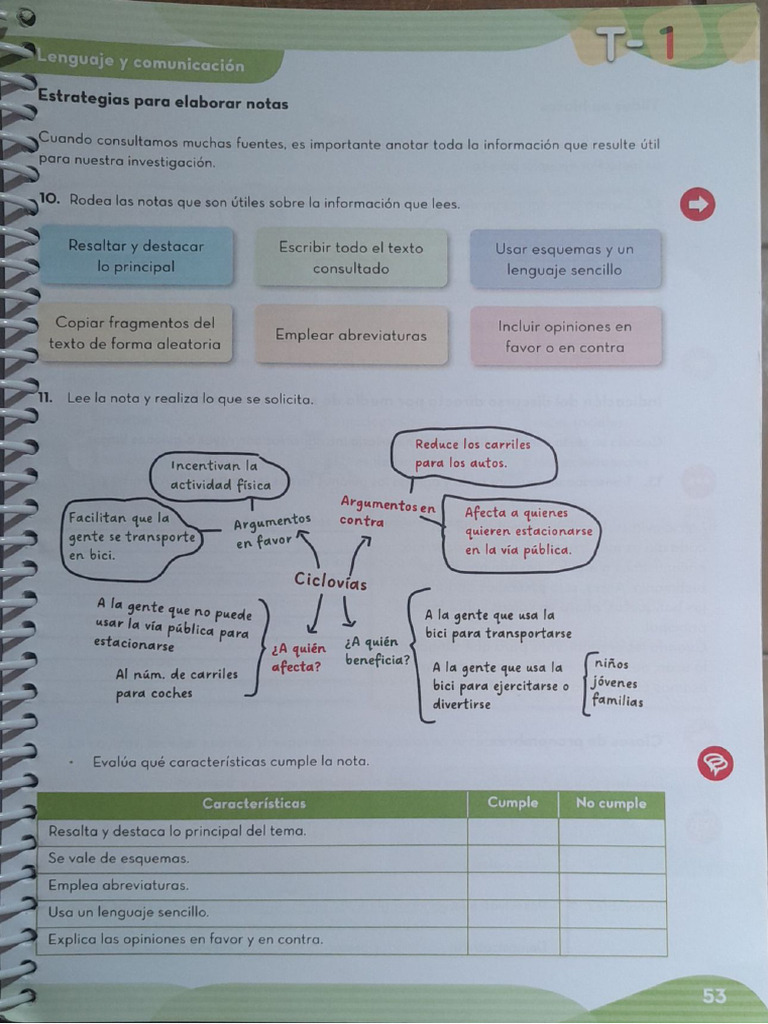 T-1
Lenguaje y comunicación
Estrategias para elaborar notas
Cuando consultamos muchas fuentes, es importante anotar toda la información que resulte útil
para nuestra investigación.
10. Rodea las notas que son útiles sobre la información que lees.
Resaltar y destacar
lo principal
Escribir todo el texto
consultado
Usar esquemas y un
lenguaje sencillo
Copiar fragmentos del
texto de forma aleatoria
Emplear abreviaturas
Incluir opiniones en
favor o en contra
11. Lee la nota y realiza lo que se solicita.
Incentivan la
actividad física
Reduce los carriles
para los autos.
Facilitan que la
gente se transporte
en bici.
Argumentos
en favor
Argumentos en
contra
Afecta a quienes
quieren estacionarse
en la vía pública.
Ciclovías
A la gente que no puede
usar la vía pública para
estacionarse
Al núm. de carriles
para coches
¿A quién
afecta?
¿A quién
beneficia?
A la gente que usa la
bici para transportarse
A la gente que usa la
bici para ejercitarse o
divertirse
niños
jóvenes
familias
• Evalúa qué características cumple la nota.
Características Cumple No cumple
Resalta y destaca lo principal del tema.
Se vale de esquemas.
Emplea abreviaturas.
Usa un lenguaje sencillo.
Explica las opiniones en favor y en contra.
53